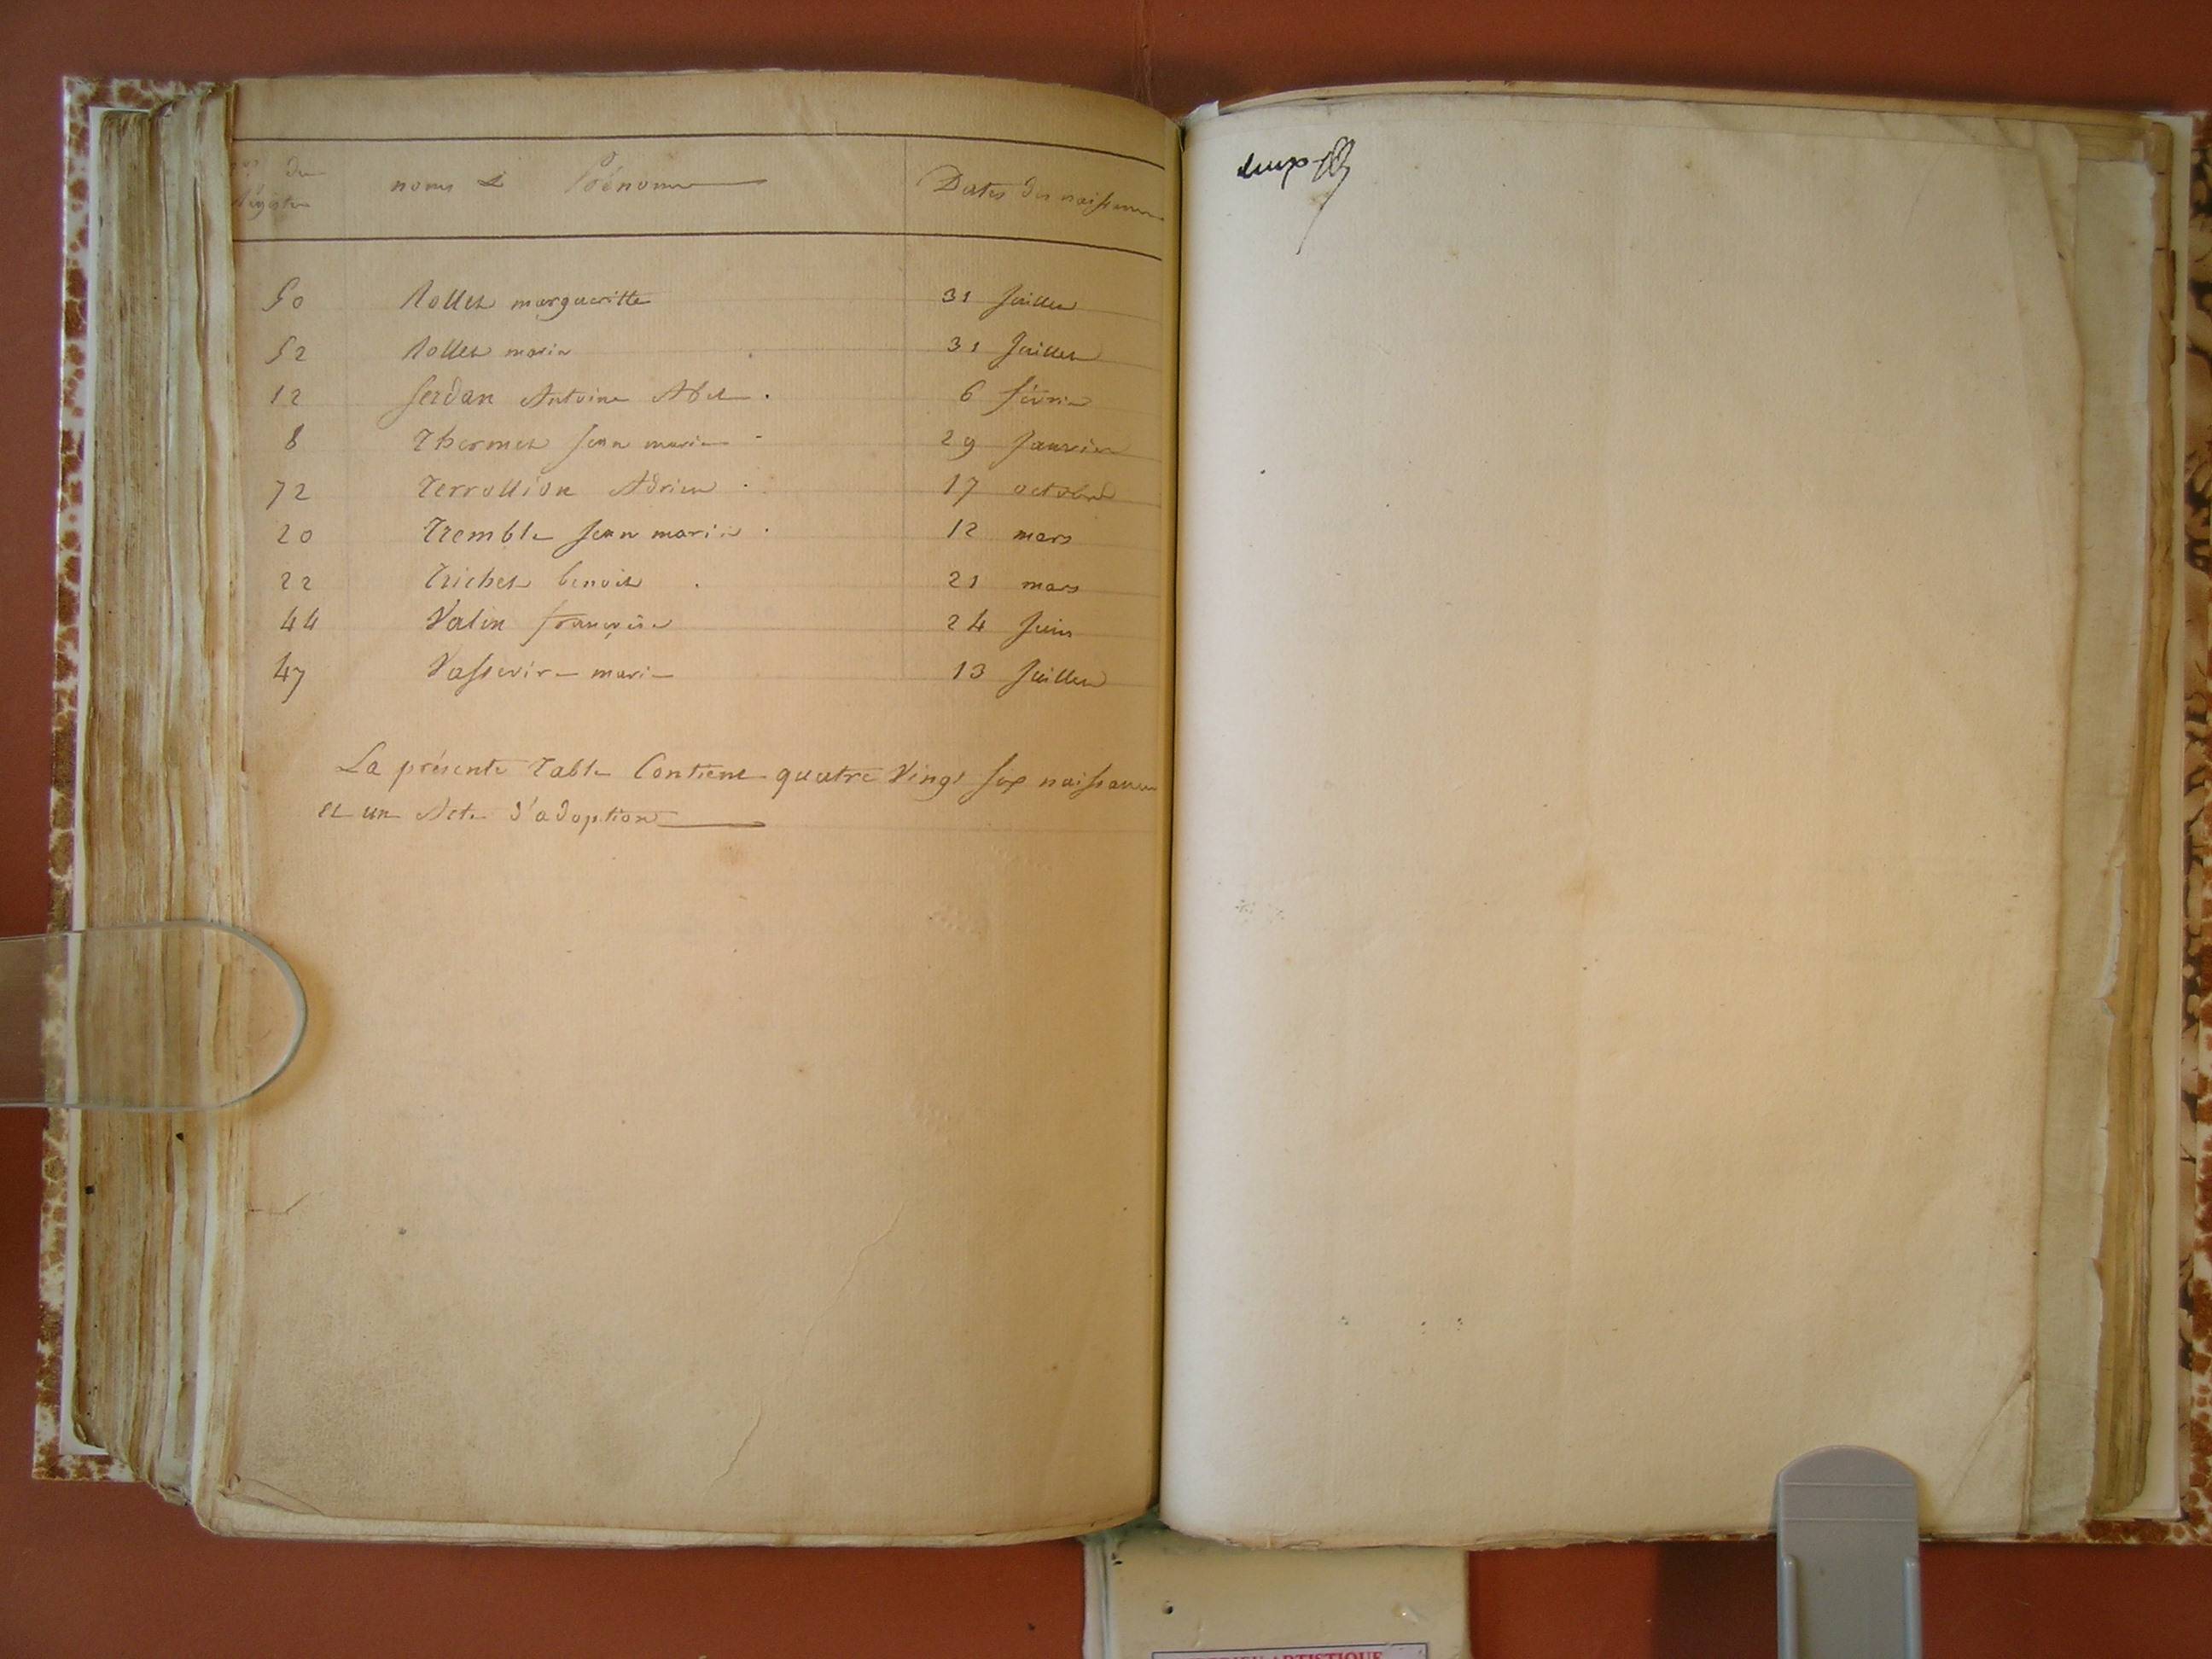 nos du noms & Prénoms Dates des naissances
Régistre
50 Rollet margueritte 31 Juillet
52 Rollet marie 31 Juillet
12 Serdan Antoine Abel 6 février
8 Thermet Jean marie 29 Janvier
72 Terrollion Adrien 17 octobre
20 Tremble Jean marie 12 mars
22 Trichet benoit 21 mars
44 Valin françoise 24 Juin
47 Vasseur marie 13 Juillet
La présente Table Contient quatre Vingt six naissances
et un Acte d'adoption
ARTISTIQUE